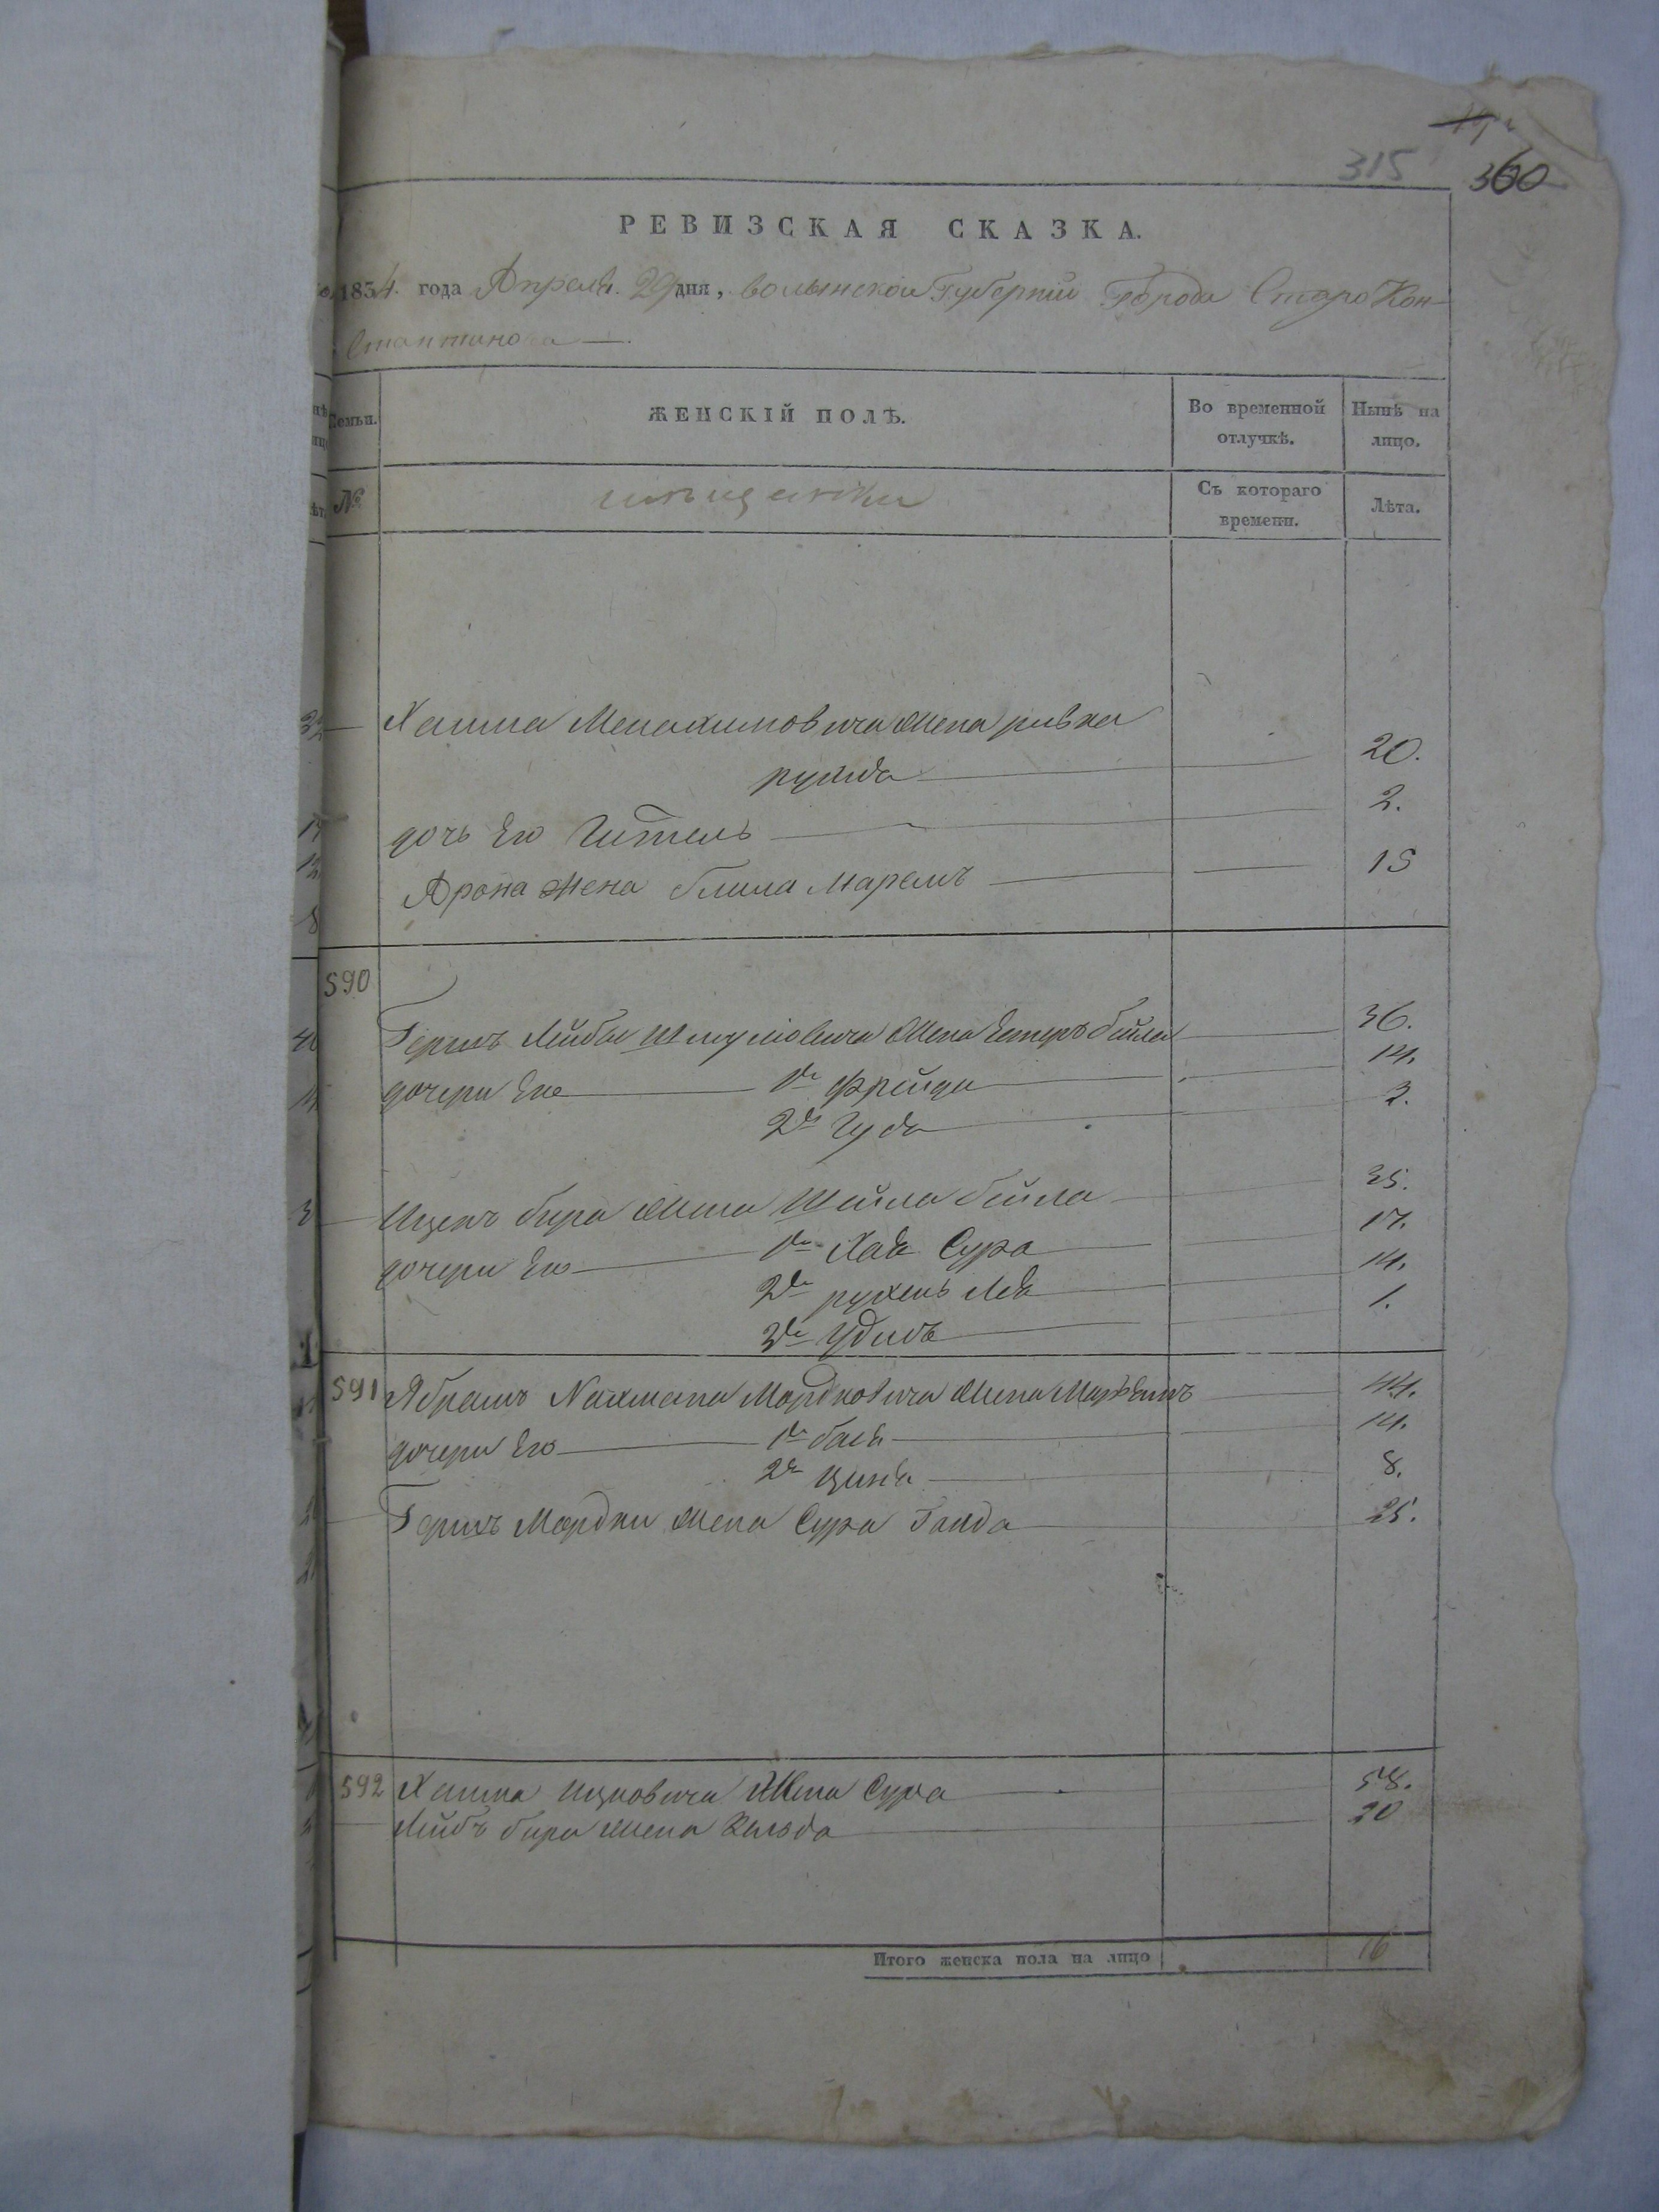 315 360
РЕВИЗСКАЯ СКАЗКА.
1834 года Апреля 29 дня, Волынской Губернии Города СтароКон-
стантинова
Семьи. ЖЕНСКІЙ ПОЛЪ. Во временной отлучкѣ. Нынѣ на лицо.
№ мещанки Съ котораго времени. Лѣта.
Хаима Менахимовича жена ривка
рухлда 20.
дочь Его Гителъ 2.
Арона жена Маремъ 15
590
Гершъ Лейбы Шмулiовича жена Естеръ бейла 36.
дочери Его 1я Фрейда 14.
2я Гуда 3.
Ицекъ бера жена Шейла бейла 35.
дочери Его 1я Хая Сура 17.
2я рухель Лея 14.
3я Удилъ 1.
591 Абрамъ Нахмана Мордковича жена Марьямъ 44.
дочери Его 1я бася 14.
2я Циня 8.
Гершъ Мордки жена Сура Голда 25.
592 Хаима Ицковича Жена Сура 58.
Лейбъ бера жена 20
Итого женска пола на лицо 16